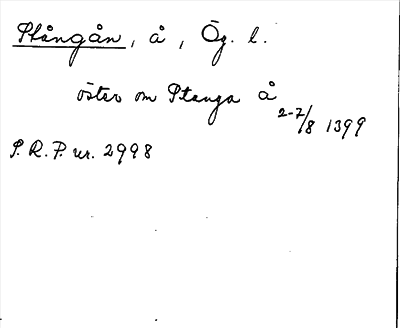 Stångån, å, Ög. l.
öster om Stanga å
2-7/8 1399
S.R.P. nr. 2998